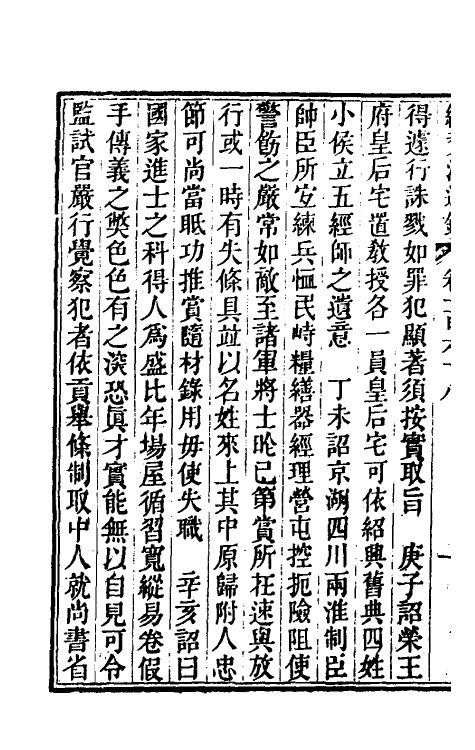 得遽行誅戮如罪犯顯著須按實取旨　庚子詔榮王
府皇后宅置敎授各一員皇后宅可依紹興舊典四姓
小侯立五經師之遺意　丁未詔京湖四川兩淮制臣
帥臣所宜練兵恤民峙糧繕器經理營屯控扼險阻使
警飭之嚴常如敵至諸軍將士昨已第賞所在速與放
行或一時有失條具並以名姓來上其中原歸附人忠
節可尚當眂功推賞隨材錄用毋使失職　辛亥詔曰
國家進士之科得人爲盛比年場屋循習寬縱易卷假
手傳義之獘色色有之深恐眞才實能無以自見可令
監試官嚴行覺察犯者依貢舉條制取中人就尚書省